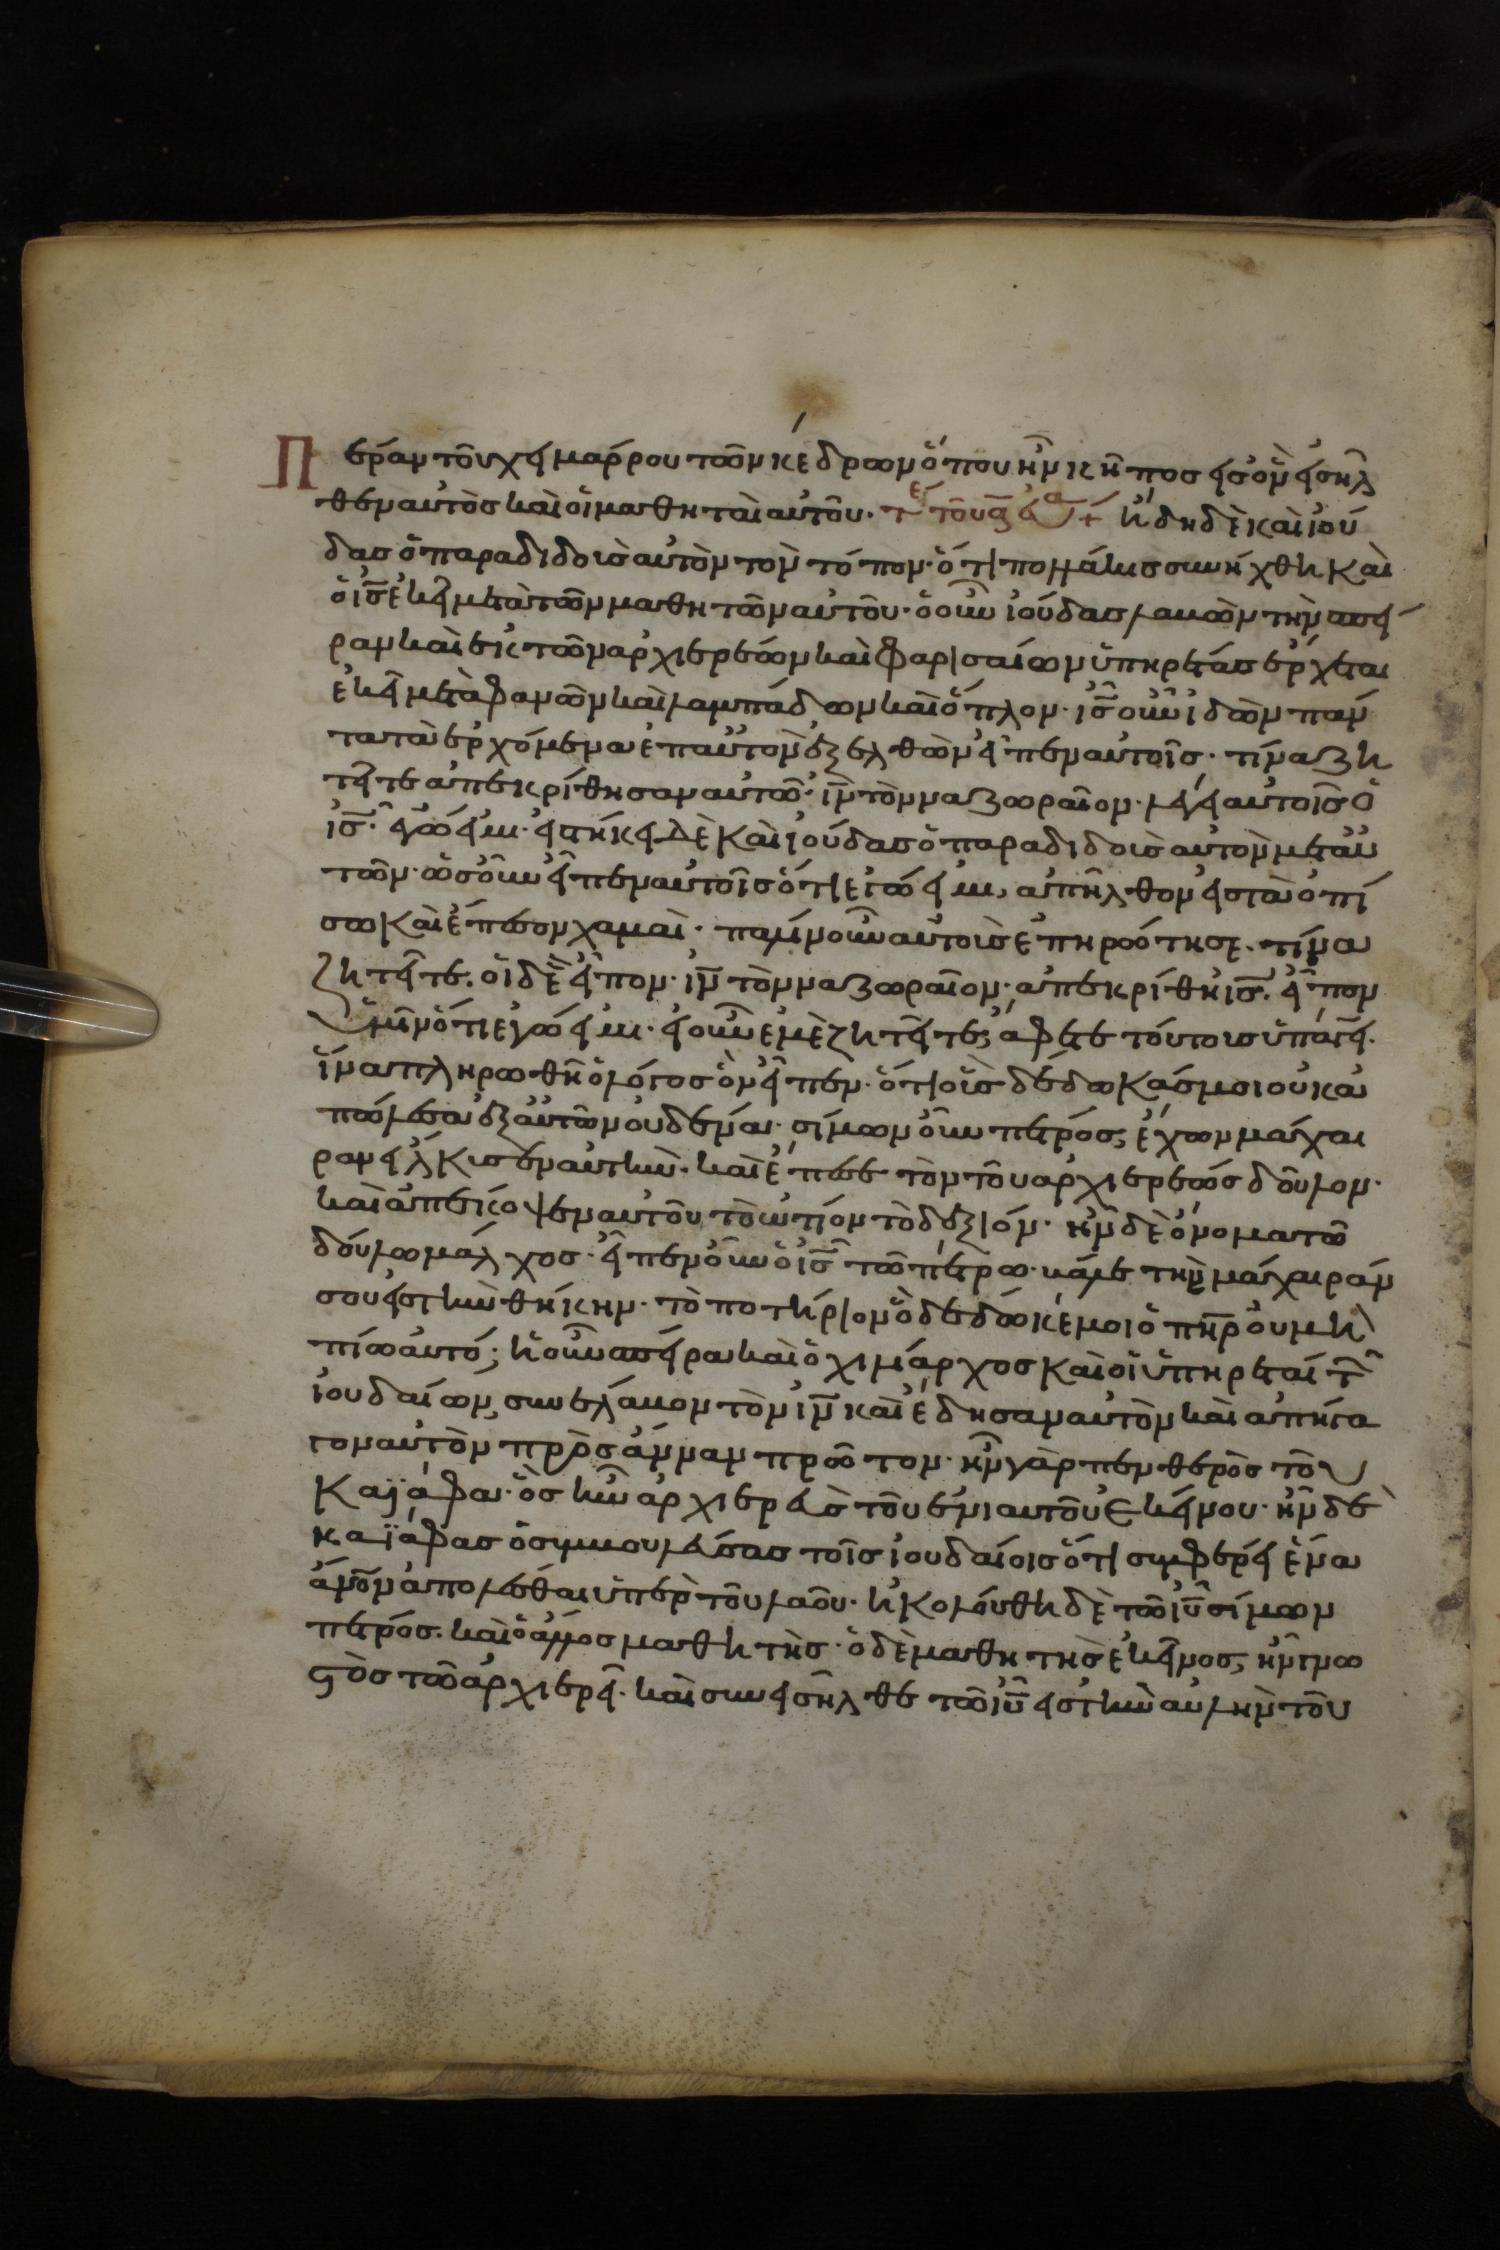 Πέραν τοῦ χειμάρρου τῶν κέδρων ὅπου ἦν κῆπος εἰς ὃν εἰσῆλ
θεν αὐτὸς καὶ οἱ μαθηταὶ αὐτοῦ· ἤδη δὲ καὶ ἰού
δας ὁ παραδιδοὺς αὐτὸν τὸν τόπον· ὅτι πολλάκις συνήχθη καὶ
ὁ ι̅ς̅ ἐκεῖ μετὰ τῶν μαθητῶν αὐτοῦ· ὁ οὖν ἰούδας λαβὼν τὴν σπεῖ
ραν καὶ ἐκ τῶν ἀρχιερέων καὶ φαρισαίων ὑπηρέτας ἔρχεται
ἐκεῖ μετὰ φανῶν καὶ λαμπάδων καὶ ὅπλον· ι̅ς̅ οὖν ἰδὼν πάν
τα τὰ ἐρχόμενα ἐπ αὐτὸν ἐξελθὼν εἶπεν αὐτοῖς· τίνα ζη
τεῖτε ἀπεκρίθησαν αὐτῶ· ι̅ν̅ τὸν ναζωραῖον· λέγει αὐτοῖς ὁ
ι̅ς̅· ἐγώ εἰμι· εἱστήκει δὲ καὶ ἰούδας ὁ παραδιδοὺς αὐτὸν μετ αὐ
τῶν· ὡς οὖν εἶπεν αὐτοῖς ὅτι ἐγώ εἰμι, ἀπῆλθον εἰς τὰ ὀπί
σω καὶ ἔπεσον χαμαὶ· πάλιν οὖν αὐτοὺς ἐπηρώτησε· τίνα
ζητεῖτε· οἱ δὲ εἶπον· ι̅ν̅ τὸν ναζωραῖον· ἀπεκρίθη ι̅ς̅· εἶπον
ὑμῖν ὅτι ἐγώ εἰμι· εἰ οὖν ἐμὲ ζητεῖτε, ἄφετε τούτοις ὑπάγειν·
ἵνα πληρωθῆ ὁ λόγος ὃν εἶπεν· ὅτι οὓς δέδωκάς μοι οὐκ ἀ
πώλεσα ἐξ αὐτῶν οὐδένα· σίμων οὖν πέτρος, ἔχων μάχαι
ραν εἵλκυσεν αὐτὴν· καὶ ἔπεσε τὸν τοῦ ἀρχιερέως δοῦλον·
καὶ ἀπέκοψεν αὐτοῦ τὸ ὠτίον τὸ δεξιόν· ἦν δὲ ὄνομα τῶ
δούλω μάλχος· εἶπεν οὖν ὁ ι̅ς̅ τῶ πέτρω· βάλε τὴν μάχαιράν
σου εἰς τὴν θήκην· τὸ ποτήριον ὃ δέδωκέ μοι ὁ π̅η̅ρ̅ οὐ μὴ
πίω αὐτό; ἡ οὖν σπείρα καὶ ὁ χιλίαρχος καὶ οἱ ὑπηρέται τ
ἰουδαίων, συνέλαβον τὸν ι̅ν̅ καὶ ἔδησαν αὐτὸν καὶ ἀπήγα
γον αὐτὸν πρὸς ἄνναν πρῶτον· ἦν γὰρ πενθερὸς τοῦ
Καϊάφα· ὃς ἦν ἀρχιερεὺς τοῦ ἐνιαυτοῦ ἐκείνου· ἦν δὲ
καϊάφας ὁ συμβουλεύσας τοῖς ἰουδαίοις ὅτι συμφέρει ἕνα
ἄ̅ν̅ο̅ν̅ ἀπολέσθαι ὑπὲρ τοῦ λαοῦ· ἠκολούθη δὲ τῶ ι̅υ̅ σίμων
πέτρος· καὶ ὁ ἄλλος μαθητὴς· ὁ δὲ μαθητὴς ἐκεῖνος, ἦν γνω
στὸς τῶ ἀρχιερεῖ· καὶ συνεισῆλθε τῶ ι̅υ̅ εἰς τὴν αὐλὴν τοῦ